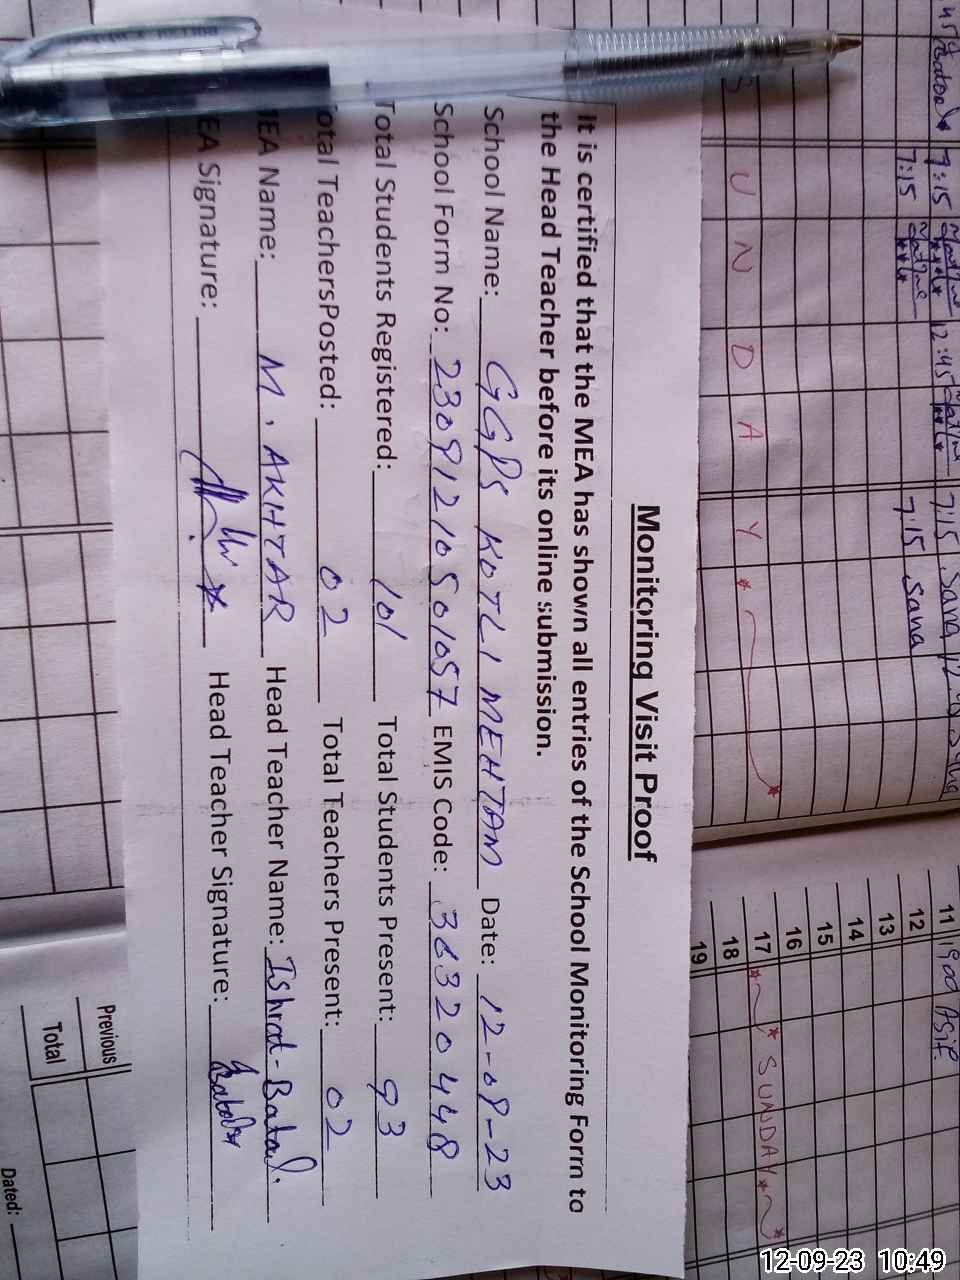 Monitoring Visit Proof
It is certified that the MEA has shown all entries of the School Monitoring Form to
the Head Teacher before its online submission.
School Name: GGPS KOTLI MEHTAM Date: 12-09-23
School Form No: 23091210501057 EMIS Code: 36320448
Total Students Registered: 101 Total Students Present: 93
otal TeachersPosted: 02 Total Teachers Present: 02
EA Name: M. AKHTAR Head Teacher Name: Ishrat-Batool.
EA Signature: Head Teacher Signature: Batool
S U N D A Y
7:15 12:45 7:15 Sana
7:15 7:15 Sana
11
12
13
14
15
16
17 SUNDAY
18
19
Previous
Total
Dated:
12-09-23 10:49